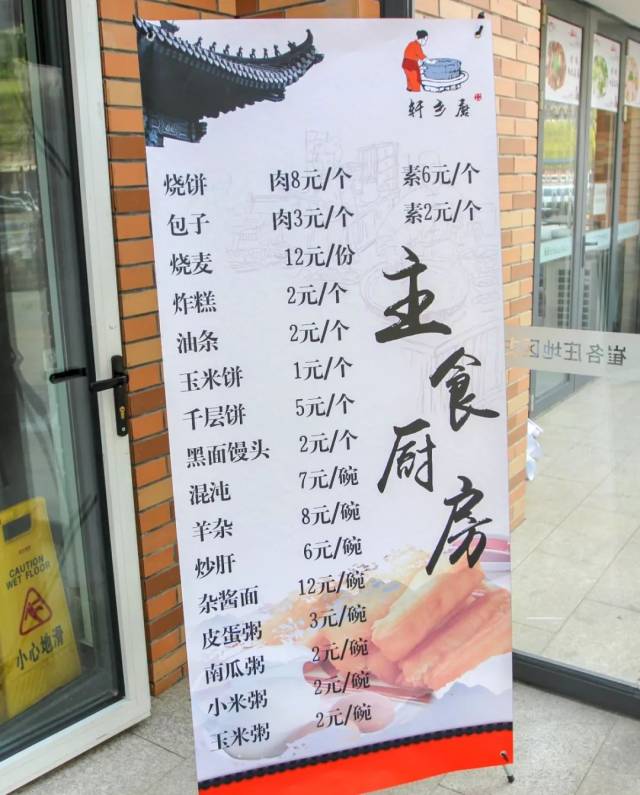 轩乡居
烧饼 肉8元/个 素6元/个
包子 肉3元/个 素2元/个
烧麦 12元/份
炸糕 2元/个
油条 2元/个
玉米饼 1元/个
千层饼 5元/个
黑面馒头 2元/个
混沌 7元/碗
羊杂 8元/碗
炒肝 6元/碗
杂酱面 12元/碗
皮蛋粥 3元/碗
南瓜粥 2元/碗
小米粥 2元/碗
玉米粥 2元/碗
主食厨房
崔各庄地区
CAUTION
WET FLOOR
小心地滑